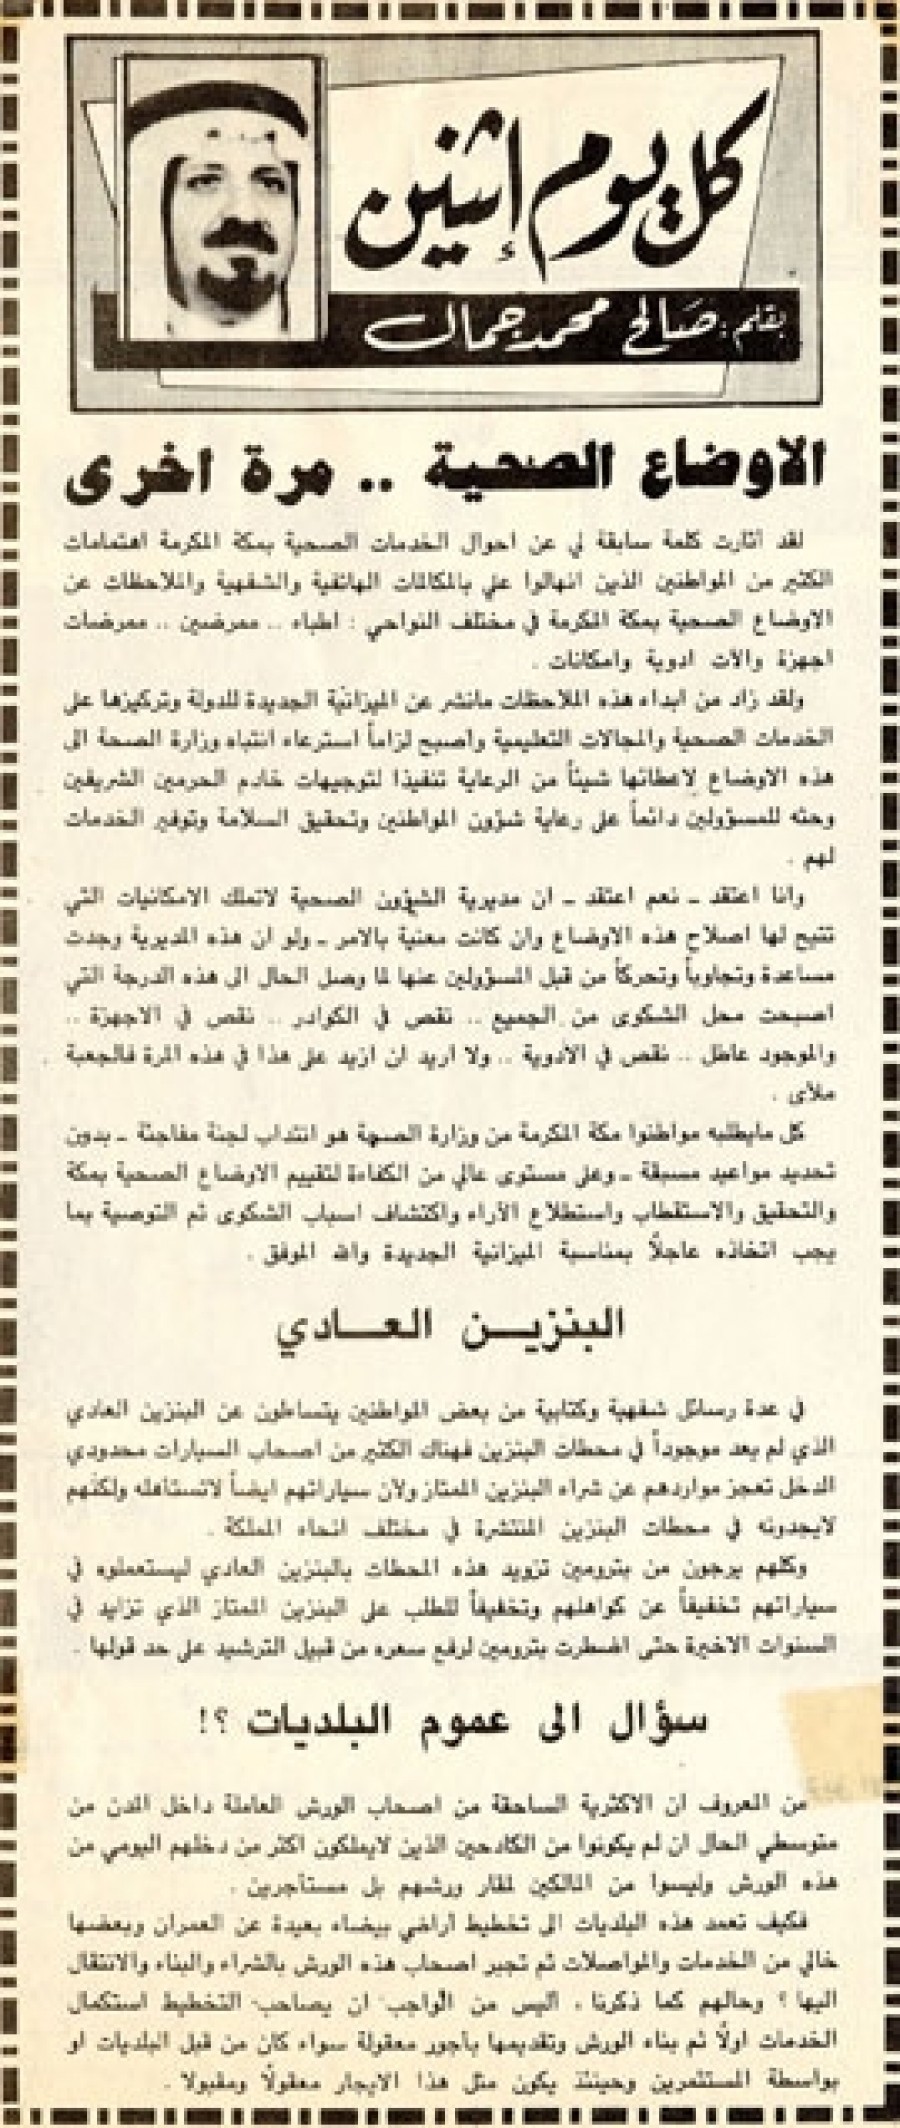 كل يوم إثنين
بقلم : صالح محمد جمال
الاوضاع الصحية .. مرة اخرى
لقد أثارت كلمة سابقة لي عن احوال الخدمات الصحية بمكة المكرمة اهتمامات
الكثير من المواطنين الذين انهالوا علي بالمكالمات الهاتفية والشفهية والملاحظات عن
الاوضاع الصحية بمكة المكرمة في مختلف النواحي : اطباء .. ممرضين .. ممرضات
اجهزة والات ادوية وامكانات .
ولقد زاد من ابداء هذه الملاحظات مانشر عن الميزانية الجديدة للدولة وتركيزها على
الخدمات الصحية والمجالات التعليمية وأصبح لزاماً استرعاء انتباه وزارة الصحة الى
هذه الاوضاع لاعطائها شيئاً من الرعاية تنفيذا لتوجيهات خادم الحرمين الشريفين
وحثه للمسؤولين دائماً على رعاية شؤون المواطنين وتحقيق السلامة وتوفير الخدمات
لهم .
وانا اعتقد ـ نعم اعتقد ـ ان مديرية الشؤون الصحية لاتملك الامكانيات التي
تتيح لها اصلاح هذه الاوضاع وان كانت معنية بالامر ـ ولو ان هذه المديرية وجدت
مساعدة وتجاوباً وتحركاً من قبل المسؤولين عنها لما وصل الحال الى هذه الدرجة التي
اصبحت محل الشكوى من الجميع .. نقص في الكوادر .. نقص في الاجهزة ..
والموجود عاطل .. نقص في الأدوية .. ولا اريد ان ازيد على هذا في هذه المرة فالجعبة
ملأى .
كل مايطلبه مواطنوا مكة المكرمة من وزارة الصحة هو انتداب لجنة مفاجئة ـ بدون
تحديد مواعيد مسبقة ـ وعلى مستوى عالي من الكفاءة لتقييم الاوضاع الصحية بمكة
والتحقيق والاستقطاب واستطلاع الآراء واكتشاف اسباب الشكوى ثم التوصية بما
يجب اتخاذه عاجلاً بمناسبة الميزانية الجديدة والله الموفق .
البنزيــن العــادي
في عدة رسائل شفهية وكتابية من بعض المواطنين يتساءلون عن البنزين العادي
الذي لم يعد موجوداً في محطات البنزين فهناك الكثير من اصحاب السيارات محدودي
الدخل تعجز مواردهم عن شراء البنزين الممتاز ولان سياراتهم ايضاً لاتستأهله ولكنهم
لايجدونه في محطات البنزين المنتشرة في مختلف انحاء المملكة .
وكلهم يرجون من بترومين تزويد هذه المحطات بالبنزين العادي ليستعملوه في
سياراتهم تخفيفاً عن كواهلهم وتخفيفاً للطلب على البنزين الممتاز الذي تزايد في
السنوات الاخيرة حتى اضطرت بترومين لرفع سعره من قبيل الترشيد على حد قولها .
سؤال الى عموم البلديات ؟!
من المعروف ان الاكثرية الساحقة من اصحاب الورش العاملة داخل المدن من
متوسطي الحال ان لم يكونوا من الكادحين الذين لايملكون اكثر من دخلهم اليومي من
هذه الورش وليسوا من المالكين لمقار ورشهم بل مستأجرين .
فكيف تعمد هذه البلديات الى تخطيط اراضي بيضاء بعيدة عن العمران وبعضها
خالي من الخدمات والمواصلات ثم تجبر اصحاب هذه الورش بالشراء والبناء والانتقال
اليها ؟ وحالهم كما ذكرنا ، اليس من الواجب ان يصاحب التخطيط استكمال
الخدمات اولاً ثم بناء الورش وتقديمها بأجور معقولة سواء كان من قبل البلديات او
بواسطة المستثمرين وحينئذ يكون مثل هذا الايجار معقولاً ومقبولا .